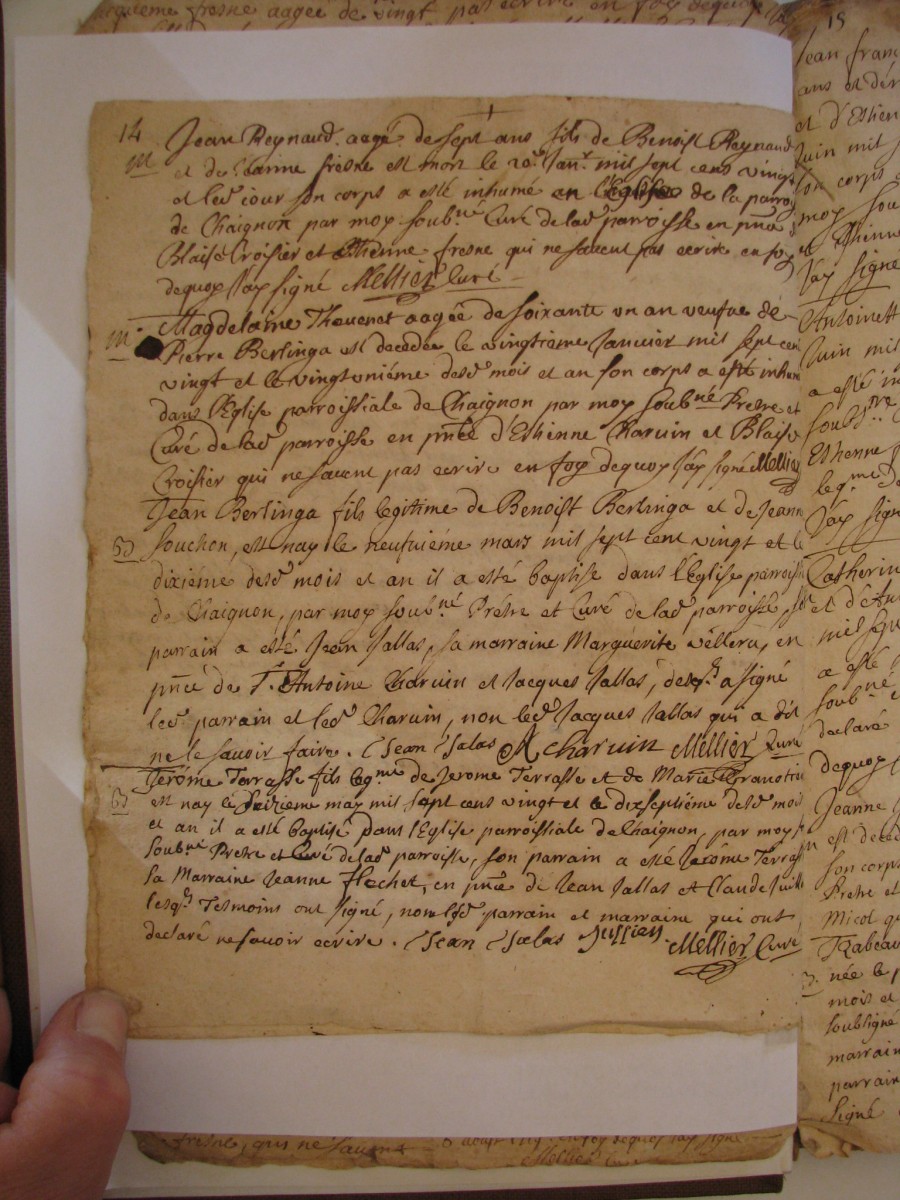 14
M
Jean Reynaud aagé de sept ans fils de Benoist Reynaud
et de Jeanne fresne est mort le 20e Janr mil sept cens vingt
et led iour son corps a esté inhumé en l'Eglise de la parro
de Chaignon par moy soubné Curé de lad parroisse en pnce
Blaise Croisier et Estienne fresne qui ne scauent pas ecrire en foy
dequoy J'ay signé Mellier Curé
M
Magdelaine Thouenet aagée de soixante un an veufue de
Pierre Berlinga est decedée le vingtieme Januier mil sept cen
vingt et le vingtuniéme desd mois et an son corps a esté inhu
dans l'Eglise parroissiale de Chaignon par moy soubné Prestre et
Curé de lad parroisse en pnce d'Estienne Charuin et Blaise
Croisier qui ne scauent pas ecrire en foy dequoy J'ay signé Mellier
Jean Berlinga fils legitime de Benoist Berlinga et de Jeann
B
Souchon, est nay le neufuiéme mars mil sept cent vingt et le
dixiéme desd mois et an il a esté baptise dans l'Eglise parroissi
de Chaignon, par moy soubné Prêtre et Curé de lad parroisse, so
parrain a esté Jean Jallas, sa marraine Marguerite en
pnce de Antoine Charuin et Jacques Jallas, desqls a signé
led parrain et led Charuin, non led Jacques Jallas qui a dit
ne le scavoir faire. Jean Jalas A Charuin Mellier Curé
Jerôme Terrasse fils legme de Jerome Terrasse et de Marie
B
est nay le seizieme may mil sept cens vingt et le dixseptiéme desd mois
et an il a esté baptisé dans l'Eglise parroissiale de Chaignon, par moy
soubné Prestre et Curé de lad parroisse, son parrain a esté Jerôme Terras
sa Marraine Jeanne flechet, en pnce de Jean Jallas et Claude
lesqls Tesmoins ont signé, non lesd parrain et marraine qui ont
declaré ne scavoir ecrire. Jean Jalas Jullien Mellier Curé
15
Jean fran
ans et
et d'Estien
Juin mil
son corps
moy sou
Estienne
J'ay signé
Antoinett
Juin mil
a esté in
Estienne
legme de
J'ay sign
Catherin
et d'An
mil sept
a esté
soubné
declaré
dequoy
Jeanne
est deced
son corps
Prestre et
Micol qu
née le
mois et
soubsigné
marrain
parrain
signé
fresne, qui ne scauent